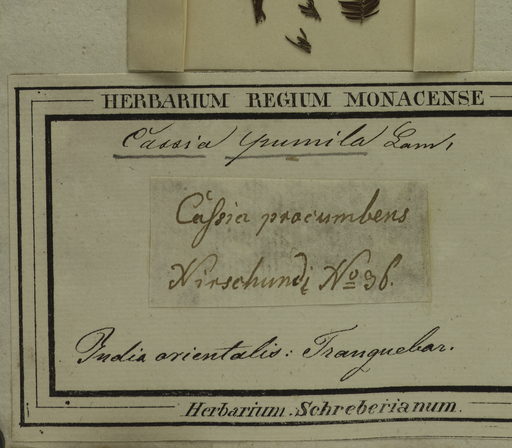 HERBARIUM REGIUM MONACENSE
Cassia pumila Lam,
Cassia procumbens
Nirschundi No 36.
India orientalis: Tranquebar.
Herbarium Schreberianum.